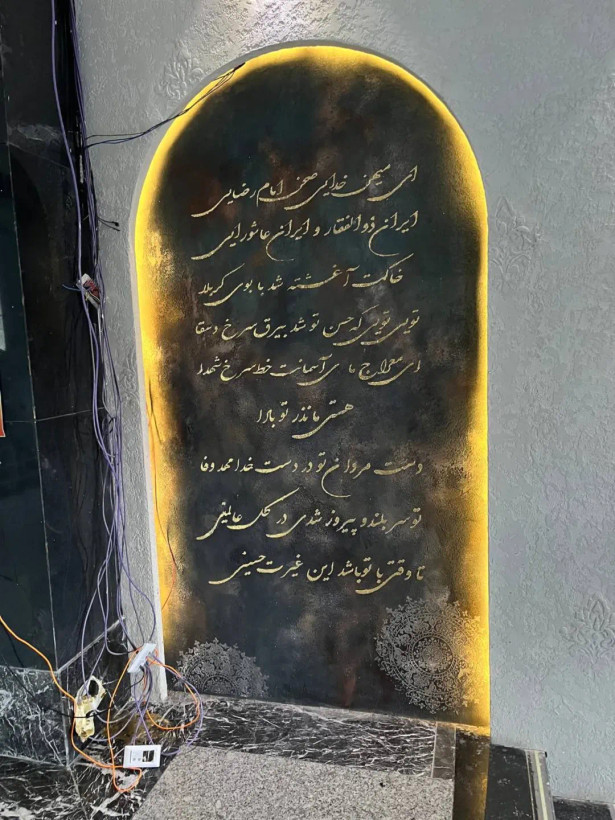 ای میهن خدایی صحن امام رضایی
ایران ذوالفقار و ایران عاشورایی
خاکت آغشته شد با بوی کربلا
تویی تویی که حسن تو شد بیرق سرخ دسقا
ای معراج ما ی آسمانت خط سرخ شهدا
هستی ما نذر تو بادا
دست مردان تو در دست خدا مهد وفا
تو سر بلند و پیروز شدی در کل عالمینی
تا وقتی با تو باشد این غیرت حسینی